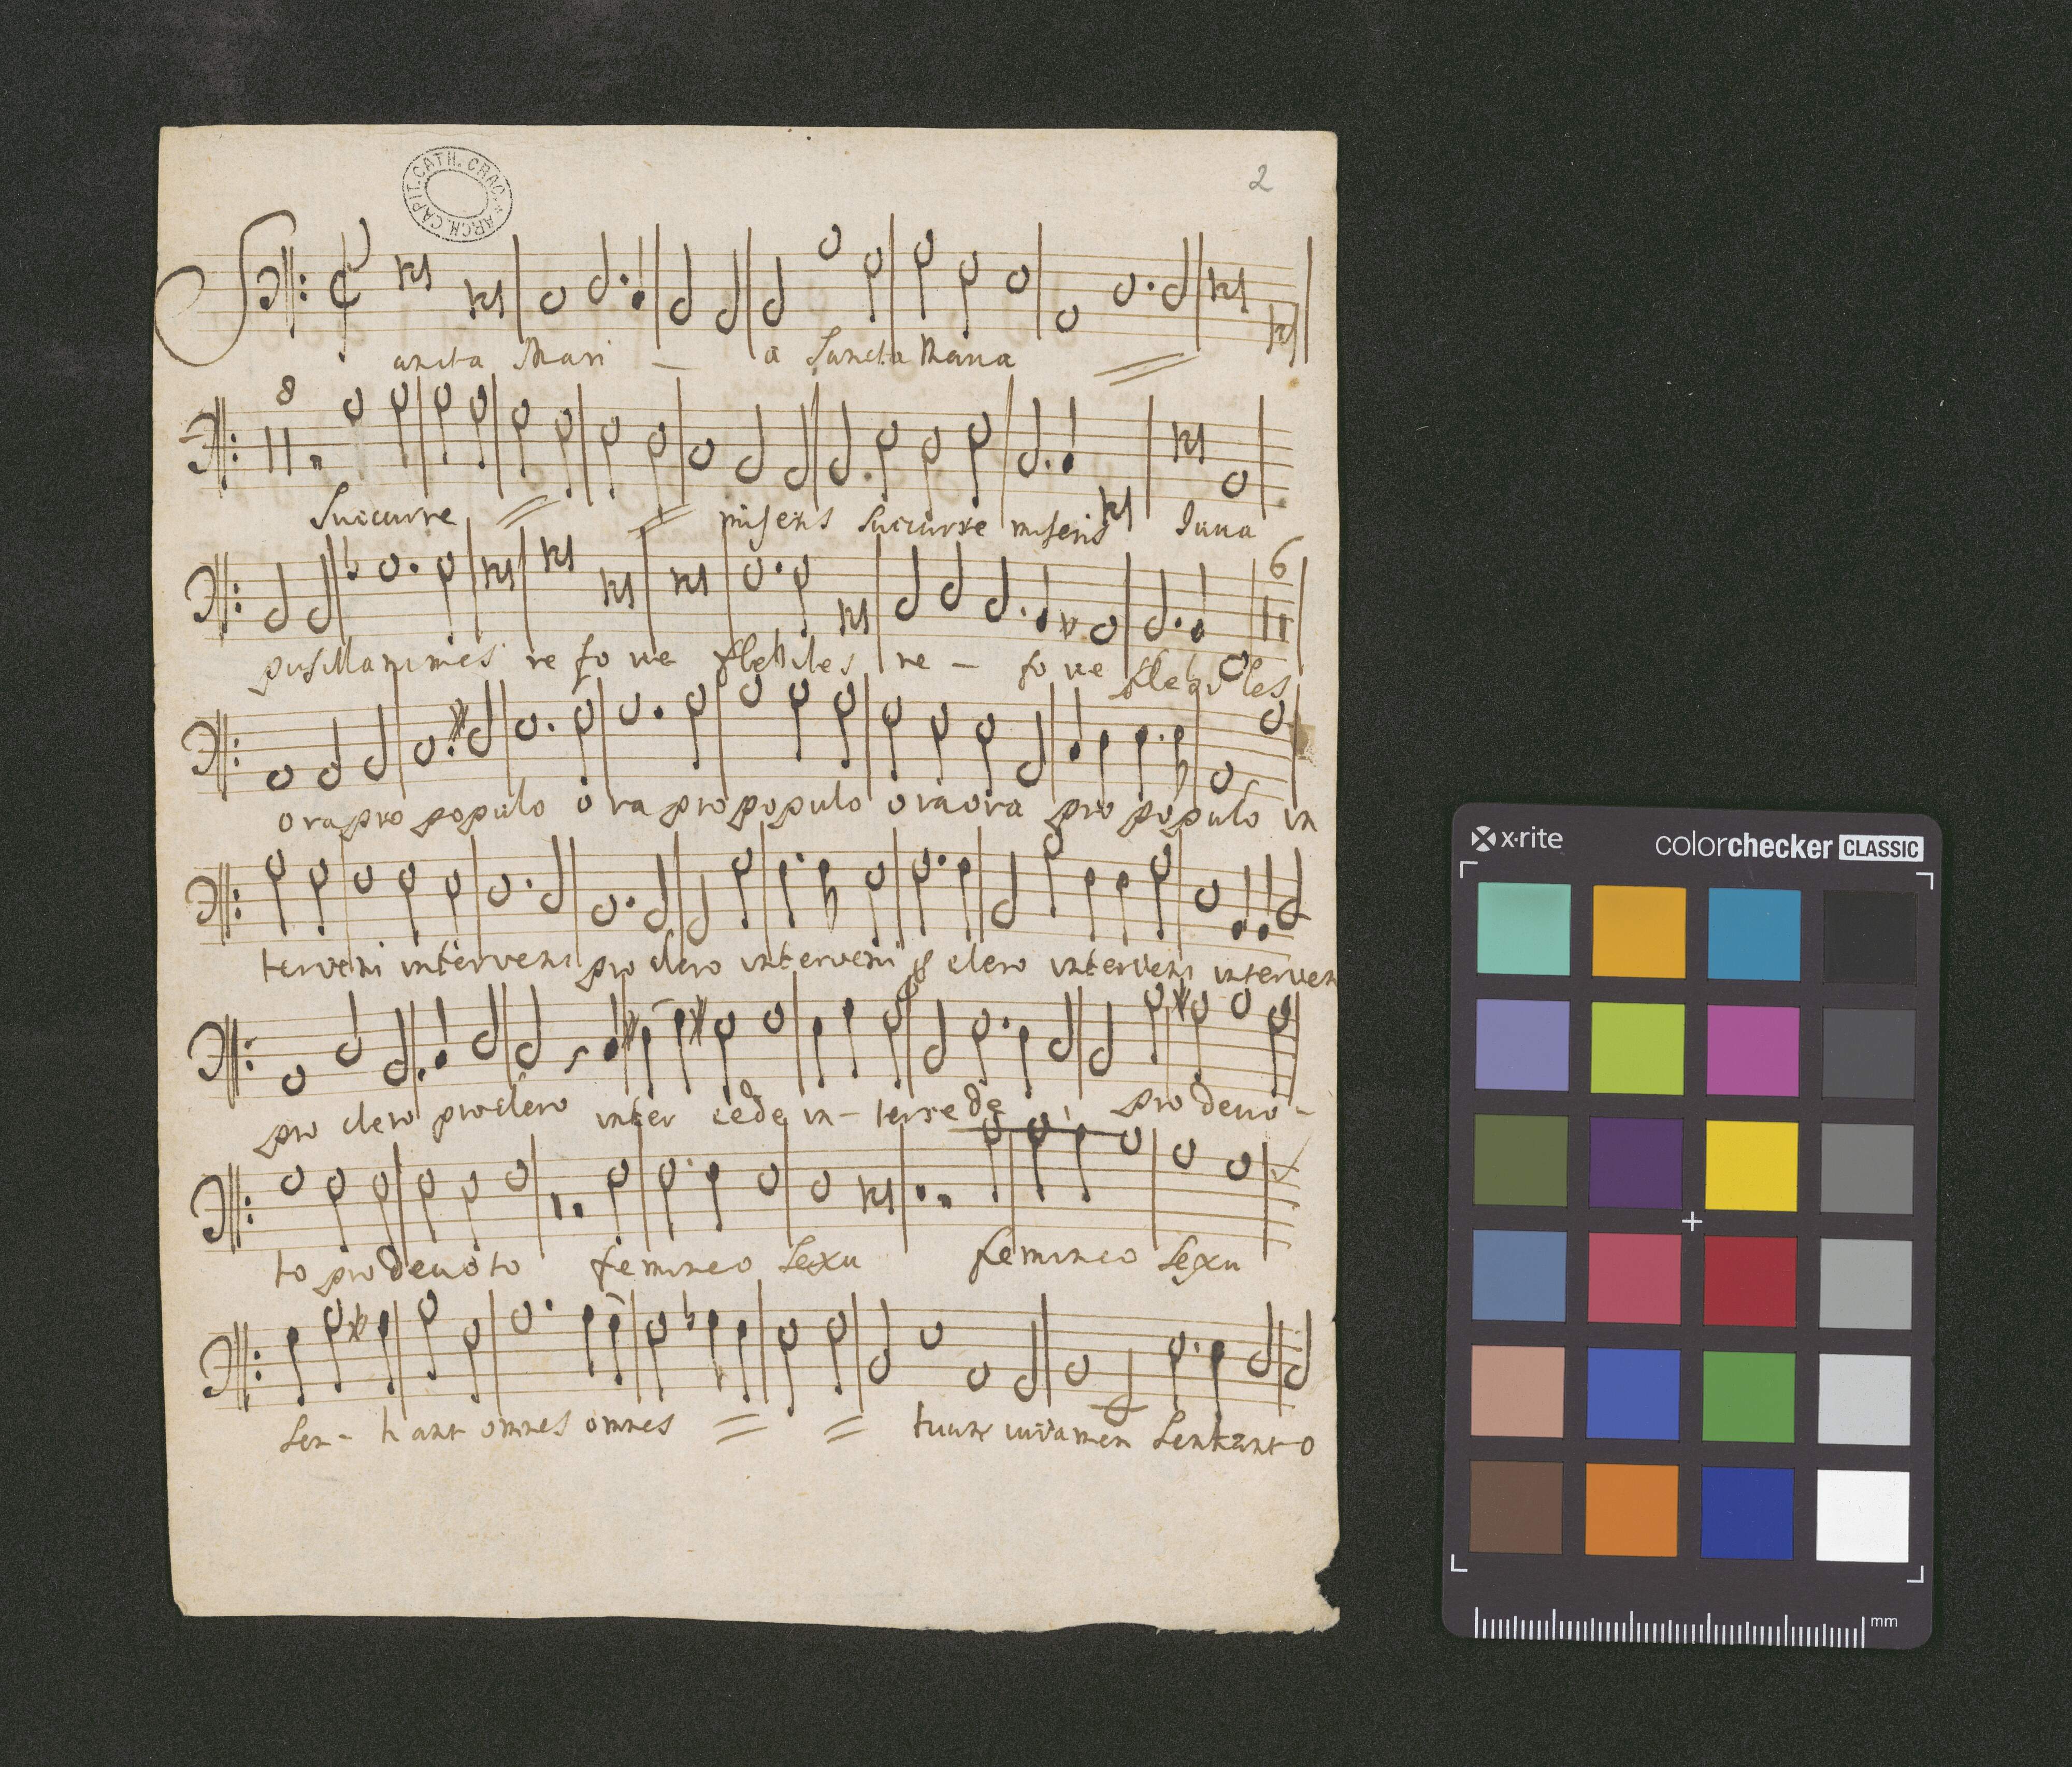 ARCH. CAPIT. CATH. CRAC. *
2
Sancta Mari - a Sancta Maria
8
Succurre miseris Succurre miseris Iuua
6
pusillanimes re fo ue flebiles re - fo ue flebiles
ora pro populo o ra pro populo ora ora pro populo in
terveni interveni pro clero interveni clero interveni interven
pro clero pro clero inter cede in - terce de pro deuo -
to pro deuoto femineo Sexu femineo Sexu
Sen - ti ant omnes omnes tuum iuvamen Sentiant o
x-rite colorchecker CLASSIC
mm